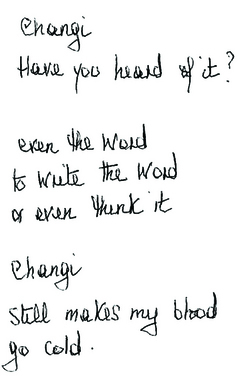 Changi
Have you heard of it?
even the word
to write the word
or even think it
Changi
still makes my blood
go cold.